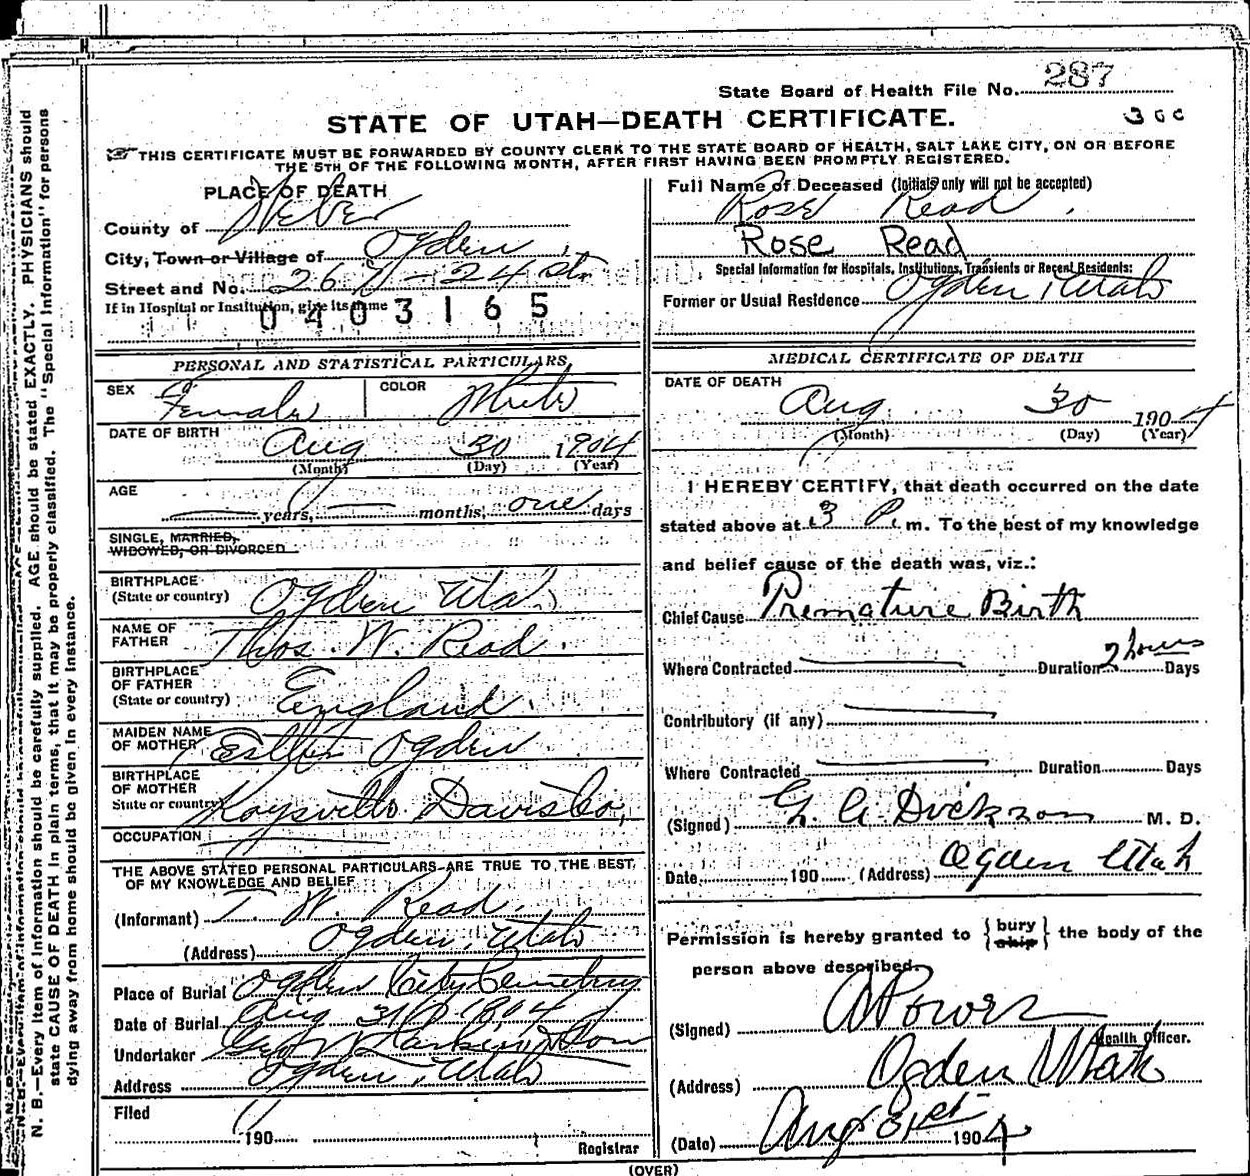 State Board of Health File No. 287
STATE OF UTAH—DEATH CERTIFICATE.
300
THIS CERTIFICATE MUST BE FORWARDED BY COUNTY CLERK TO THE STATE BOARD OF HEALTH, SALT LAKE CITY, ON OR BEFORE
THE 5TH OF THE FOLLOWING MONTH, AFTER FIRST HAVING BEEN PROMPTLY REGISTERED.
PLACE OF DEATH
County of Weber
City, Town or Village of Ogden
Street and No. 24 Str
If in Hospital or Institution, give its name
0403165
Full Name of Deceased (Initials only will not be accepted)
Rose Read
Rose Read
Special Information for Hospitals, Institutions, Transients or Recent Residents:
Former or Usual Residence Ogden, Utah
PERSONAL AND STATISTICAL PARTICULARS,
SEX Female COLOR White
DATE OF BIRTH Aug 30 1904
(Month) (Day) (Year)
AGE
years, months, one days
SINGLE, MARRIED,
WIDOWED, OR DIVORCED
BIRTHPLACE
(State or country) Ogden Utah
NAME OF
FATHER Thos. W. Read.
BIRTHPLACE
OF FATHER
(State or country) England.
MAIDEN NAME
OF MOTHER Esther Ogden
BIRTHPLACE
OF MOTHER
State or country) Kaysville Davis Co,
OCCUPATION
THE ABOVE STATED PERSONAL PARTICULARS ARE TRUE TO THE BEST
OF MY KNOWLEDGE AND BELIEF
(Informant) T. W. Read,
(Address) Ogden, Utah
Place of Burial Ogden City Cemetery
Date of Burial Aug 31 1904
Undertaker
Address Ogden, Utah
Filed
190
Registrar
MEDICAL CERTIFICATE OF DEATH
DATE OF DEATH
Aug 30 1904
(Month) (Day) (Year)
I HEREBY CERTIFY, that death occurred on the date
stated above at 3 P. m. To the best of my knowledge
and belief cause of the death was, viz.:
Chief Cause Premature Birth
Where Contracted Duration 2 hours Days
Contributory (if any)
Where Contracted Duration Days
(Signed) G. A. Dickson M. D.
Date 190 (Address) Ogden Utah
Permission is hereby granted to {bury ship} the body of the
person above described.
(Signed) A Power
Health Officer.
(Address) Ogden Utah
(Date) Aug 31st 1904
(OVER)
N. B.—Every item of information should be carefully supplied. AGE should be stated EXACTLY. PHYSICIANS should
state CAUSE OF DEATH in plain terms, that it may be properly classified. The "Special Information" for persons
dying away from home should be given in every instance.